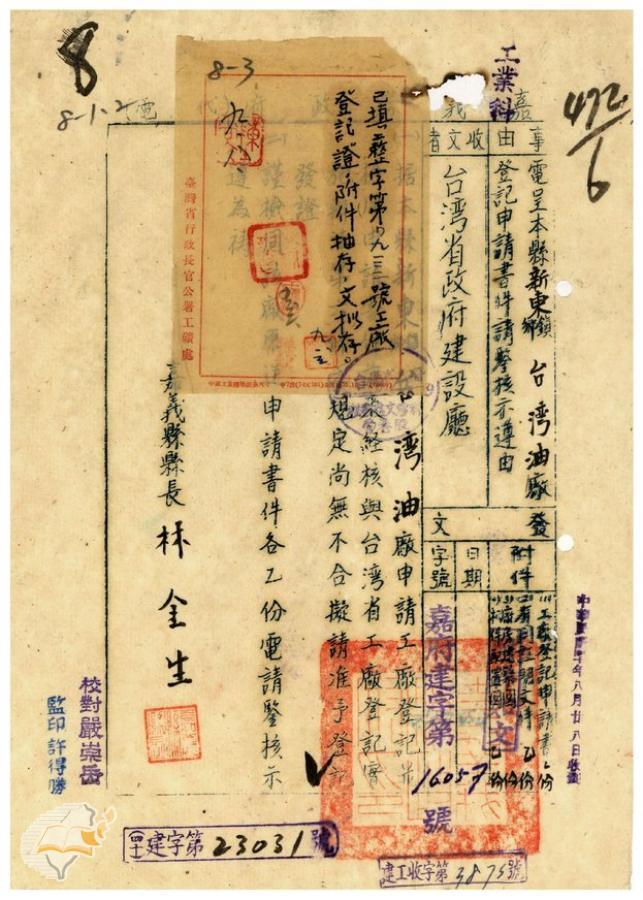 工業科
8
8-1-2
472/6
嘉義
代電
事由
電呈本縣新東鄉鎮台湾油廠
登記申請書件請鑒核亦遵由
收文者
台湾省政府建設廳
發文
附件
日期
字號
嘉府建字第16057號
8-3
已填整字第
號工廠
登記證附件抽存文拟存。
臺灣省行政長官公署工礦處
台湾油廠申請工廠登記
經核與台湾省工廠登記實
規定尚無不合擬請准予登
發證
申請書件各乙份電請鑒核示
遵為禱
嘉義縣縣長林金生
校對嚴崇岳
監印許得勝
建字第23031號
建工收字第3875號